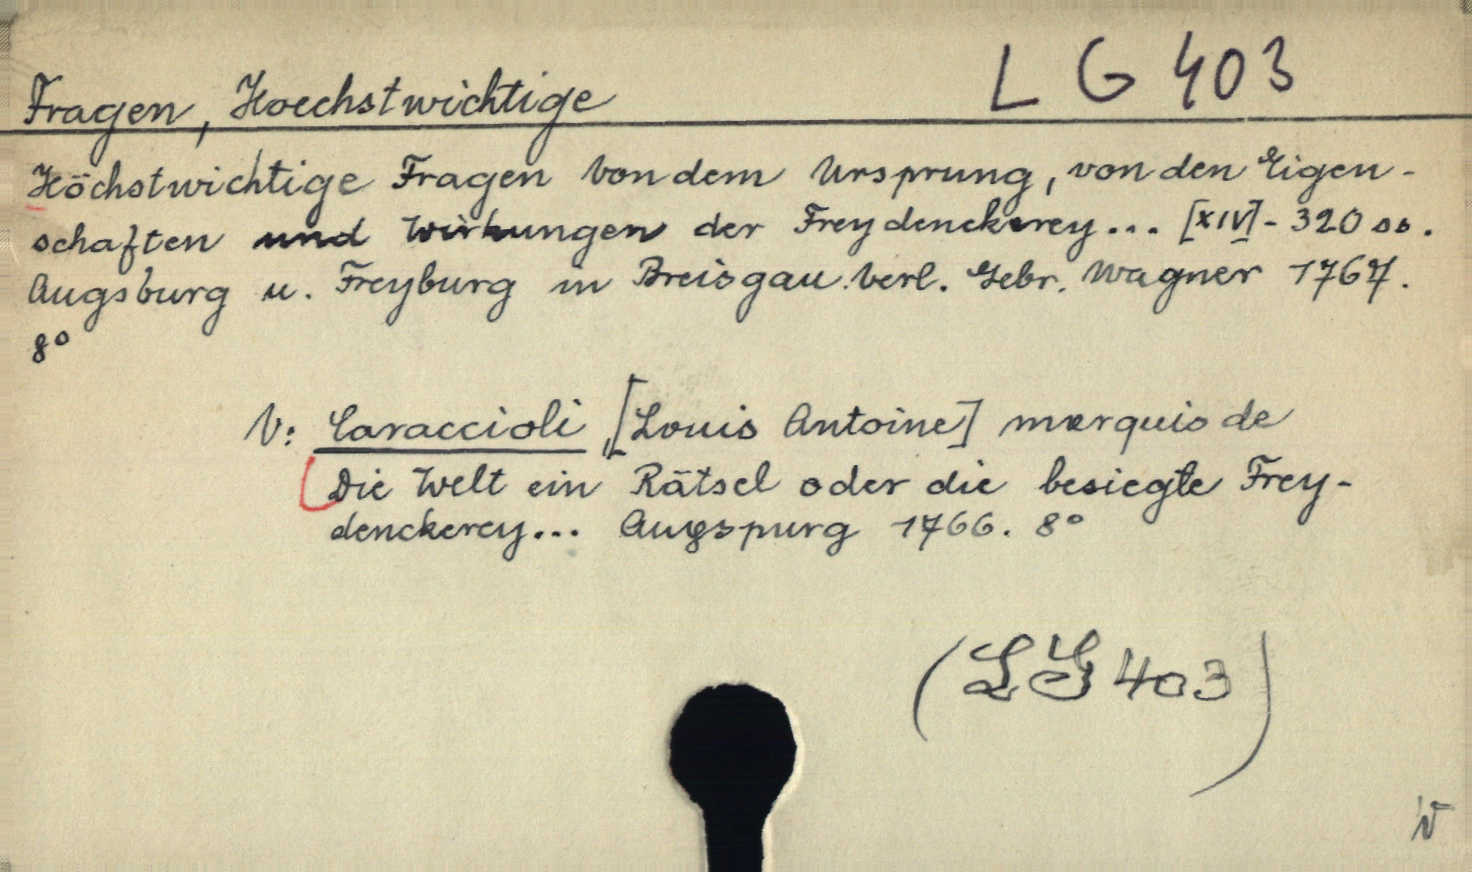 L G 403
Fragen, Hoechstwichtige
Höchstwichtige Fragen von dem Ursprung, von den Eigen-
schaften und Wirkungen der Freydenckerey... [XIV]-320 ss.
Augsburg u. Freyburg in Breisgau. Verl. Gebr. Wagner 1767.
8°
V: Caraccioli, [Louis Antoine] marquis de
Die Welt ein Rätsel oder die besiegte Frey-
denckerey... Augspurg 1766. 8°
(LG 403)